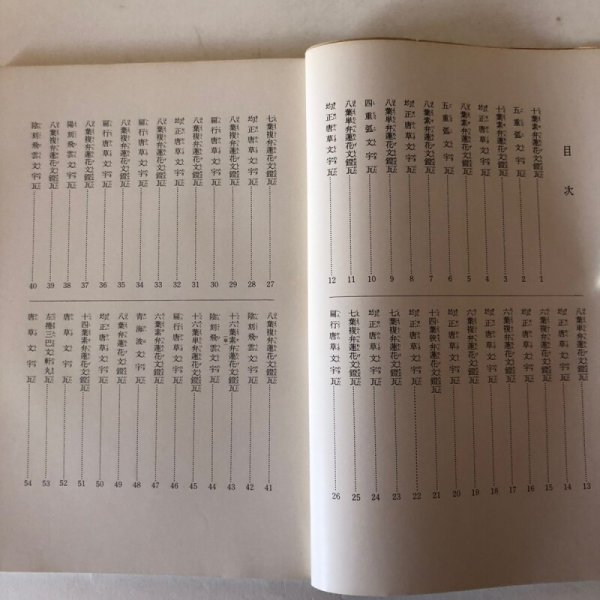 目次
十葉素弁蓮花文鐙瓦 1
五重弧文字瓦 2
八葉複弁蓮花文鐙瓦 3
均正唐草文字瓦 4
十葉素弁蓮花文鐙瓦 5
五重弧文字瓦 6
八葉複弁蓮花文鐙瓦 7
均正唐草文字瓦 8
八葉単弁蓮花文鐙瓦 9
四重弧文字瓦 10
八葉単弁蓮花文鐙瓦 11
均正唐草文字瓦 12
八葉単弁蓮花文鐙瓦 13
均正唐草文字瓦 14
八葉複弁蓮花文鐙瓦 15
均正唐草文字瓦 16
六葉複弁蓮花文鐙瓦 17
均正唐草文字瓦 18
六葉複弁蓮花文鐙瓦 19
均正唐草文字瓦 20
十四葉単弁蓮花文鐙瓦 21
均正唐草文字瓦 22
八葉単弁蓮花文鐙瓦 23
均正唐草文字瓦 24
七葉複弁蓮花文鐙瓦 25
扁行唐草文字瓦 26
七葉複弁蓮花文鐙瓦 27
均正唐草文字瓦 28
八葉複弁蓮花文鐙瓦 29
扁行唐草文字瓦 30
八葉複弁蓮花文鐙瓦 31
均正唐草文字瓦 32
八葉複弁蓮花文鐙瓦 33
扁行唐草文字瓦 34
八葉複弁蓮花文鐙瓦 35
扁行唐草文字瓦 36
八葉複弁蓮花文鐙瓦 37
陽刻飛雲文字瓦 38
八葉複弁蓮花文鐙瓦 39
陰刻飛雲文字瓦 40
八葉複弁蓮花文鐙瓦 41
陰刻飛雲文字瓦 42
十六葉複弁蓮花文鐙瓦 43
陰刻飛雲文字瓦 44
十六葉単弁蓮花文鐙瓦 45
扁行唐草文字瓦 46
六葉素弁蓮花文鐙瓦 47
青海波文字瓦 48
八葉素弁蓮花文鐙瓦 49
均正唐草文字瓦 50
十四葉素弁蓮花文鐙瓦 51
唐草文字瓦 52
左捲三巴文軒丸瓦 53
唐草文字瓦 54